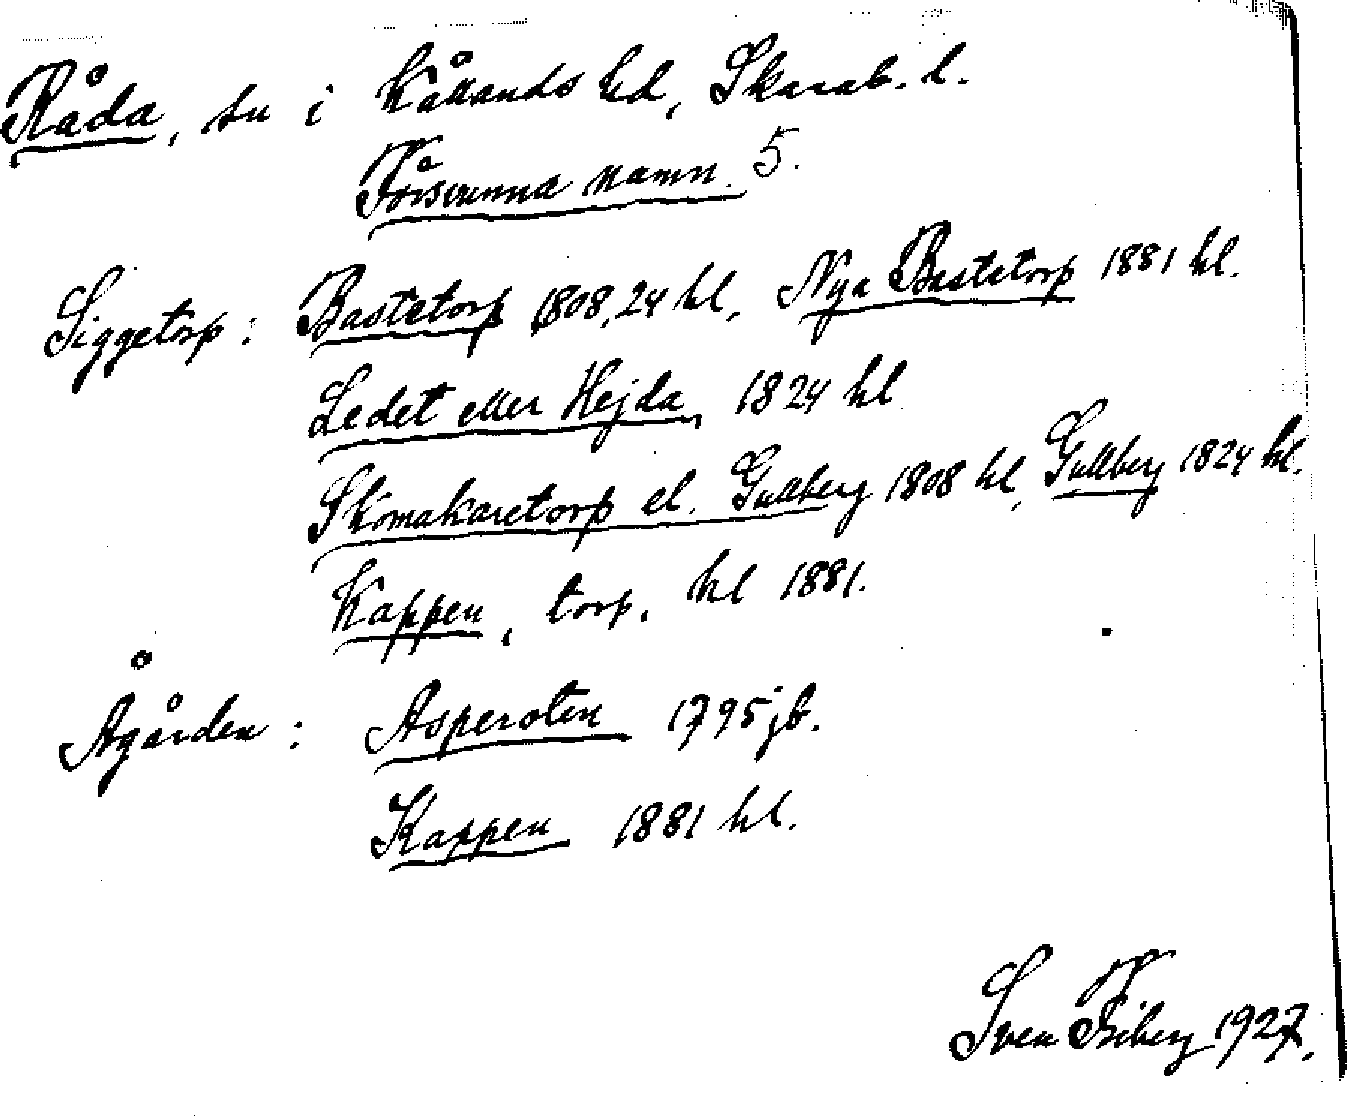 Råda, sn i Kållands hd, Skarab. l.
Försvunna namn. 5.
Siggetorp: Bastetorp 1808, 24 hl, Nya Bastetorp 1881 hl.
Ledet eller Hejda, 1824 hl
Skomakaretorp el. Gullberg 1808 hl, Gullberg 1824 hl.
Kappen, torp. hl 1881.
Ågården: Asperoten 1795 jb.
Kappen 1881 hl.
Sven Friberg 1927.